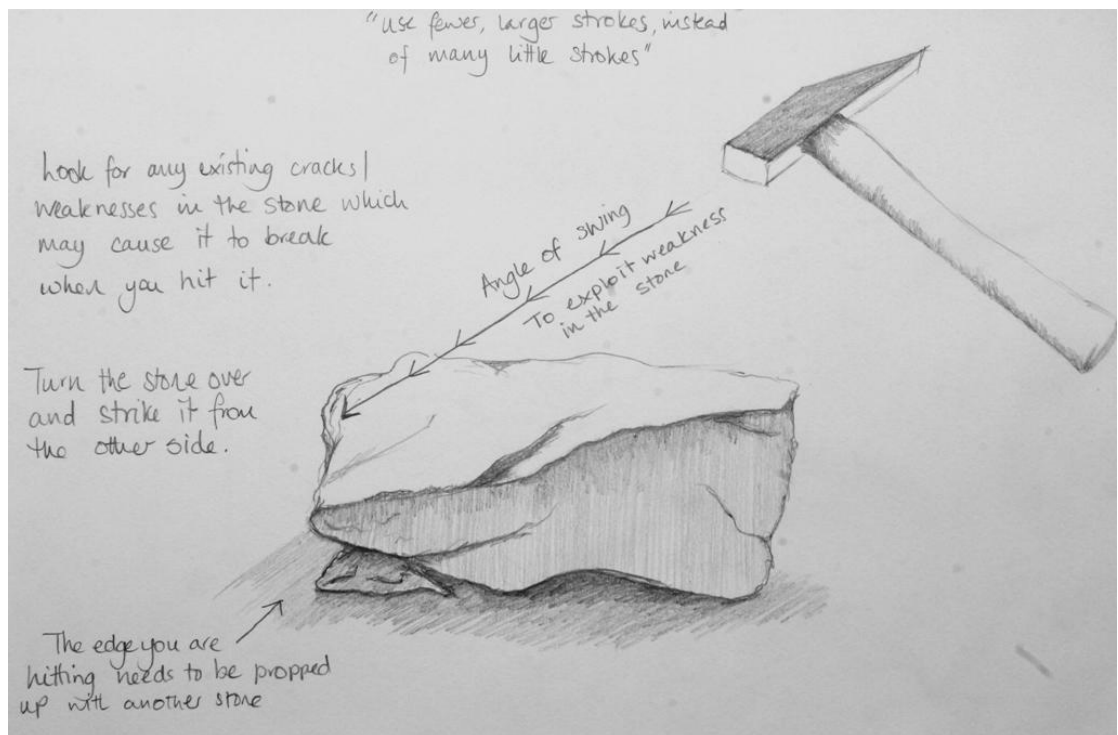 "Use fewer, larger strokes, instead
of many little strokes"
Look for any existing cracks/
weaknesses in the stone which
may cause it to break
when you hit it.
Angle of swing
To exploit weakness
in the stone
Turn the stone over
and strike it from
the other side.
The edge you are
hitting needs to be propped
up with another stone